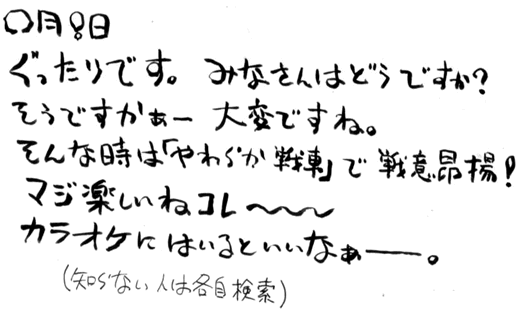 〇月8日
ぐったりです。みなさんはどうですか？
そうですかぁー 大変ですね。
そんな時は「やわらか戦車」で戦意昂揚！
マジ楽しいねコレ〜〜〜
カラオケにはいるといいなぁー。
（知らない人は各自検索）